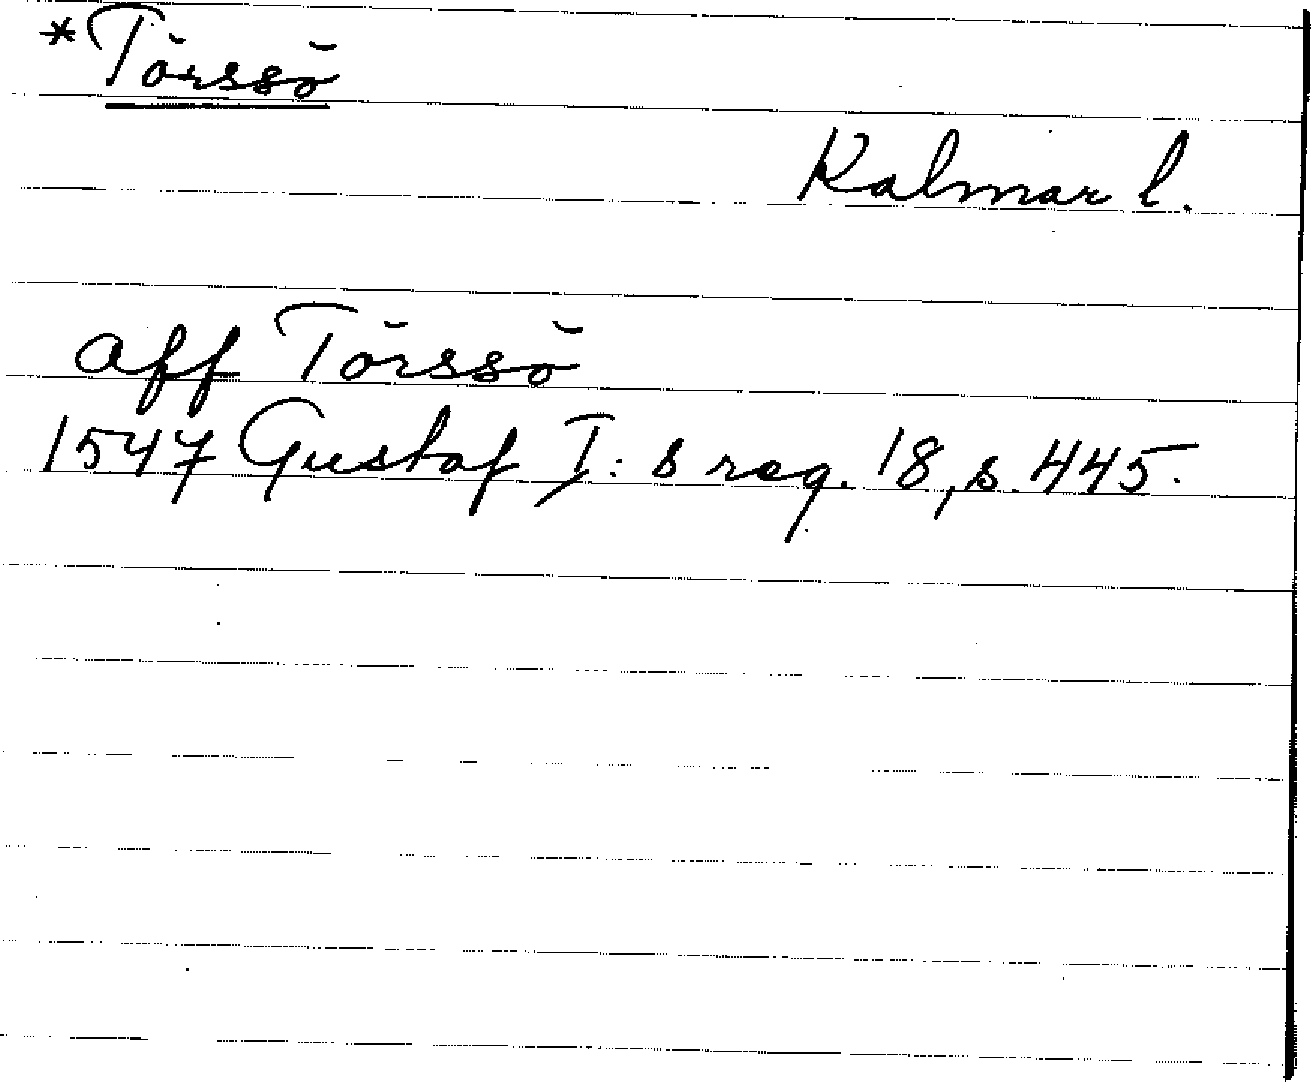 *Törssö
Kalmar l.
aff Törssö
1547 Gustaf I:s reg. 18, s. 445.